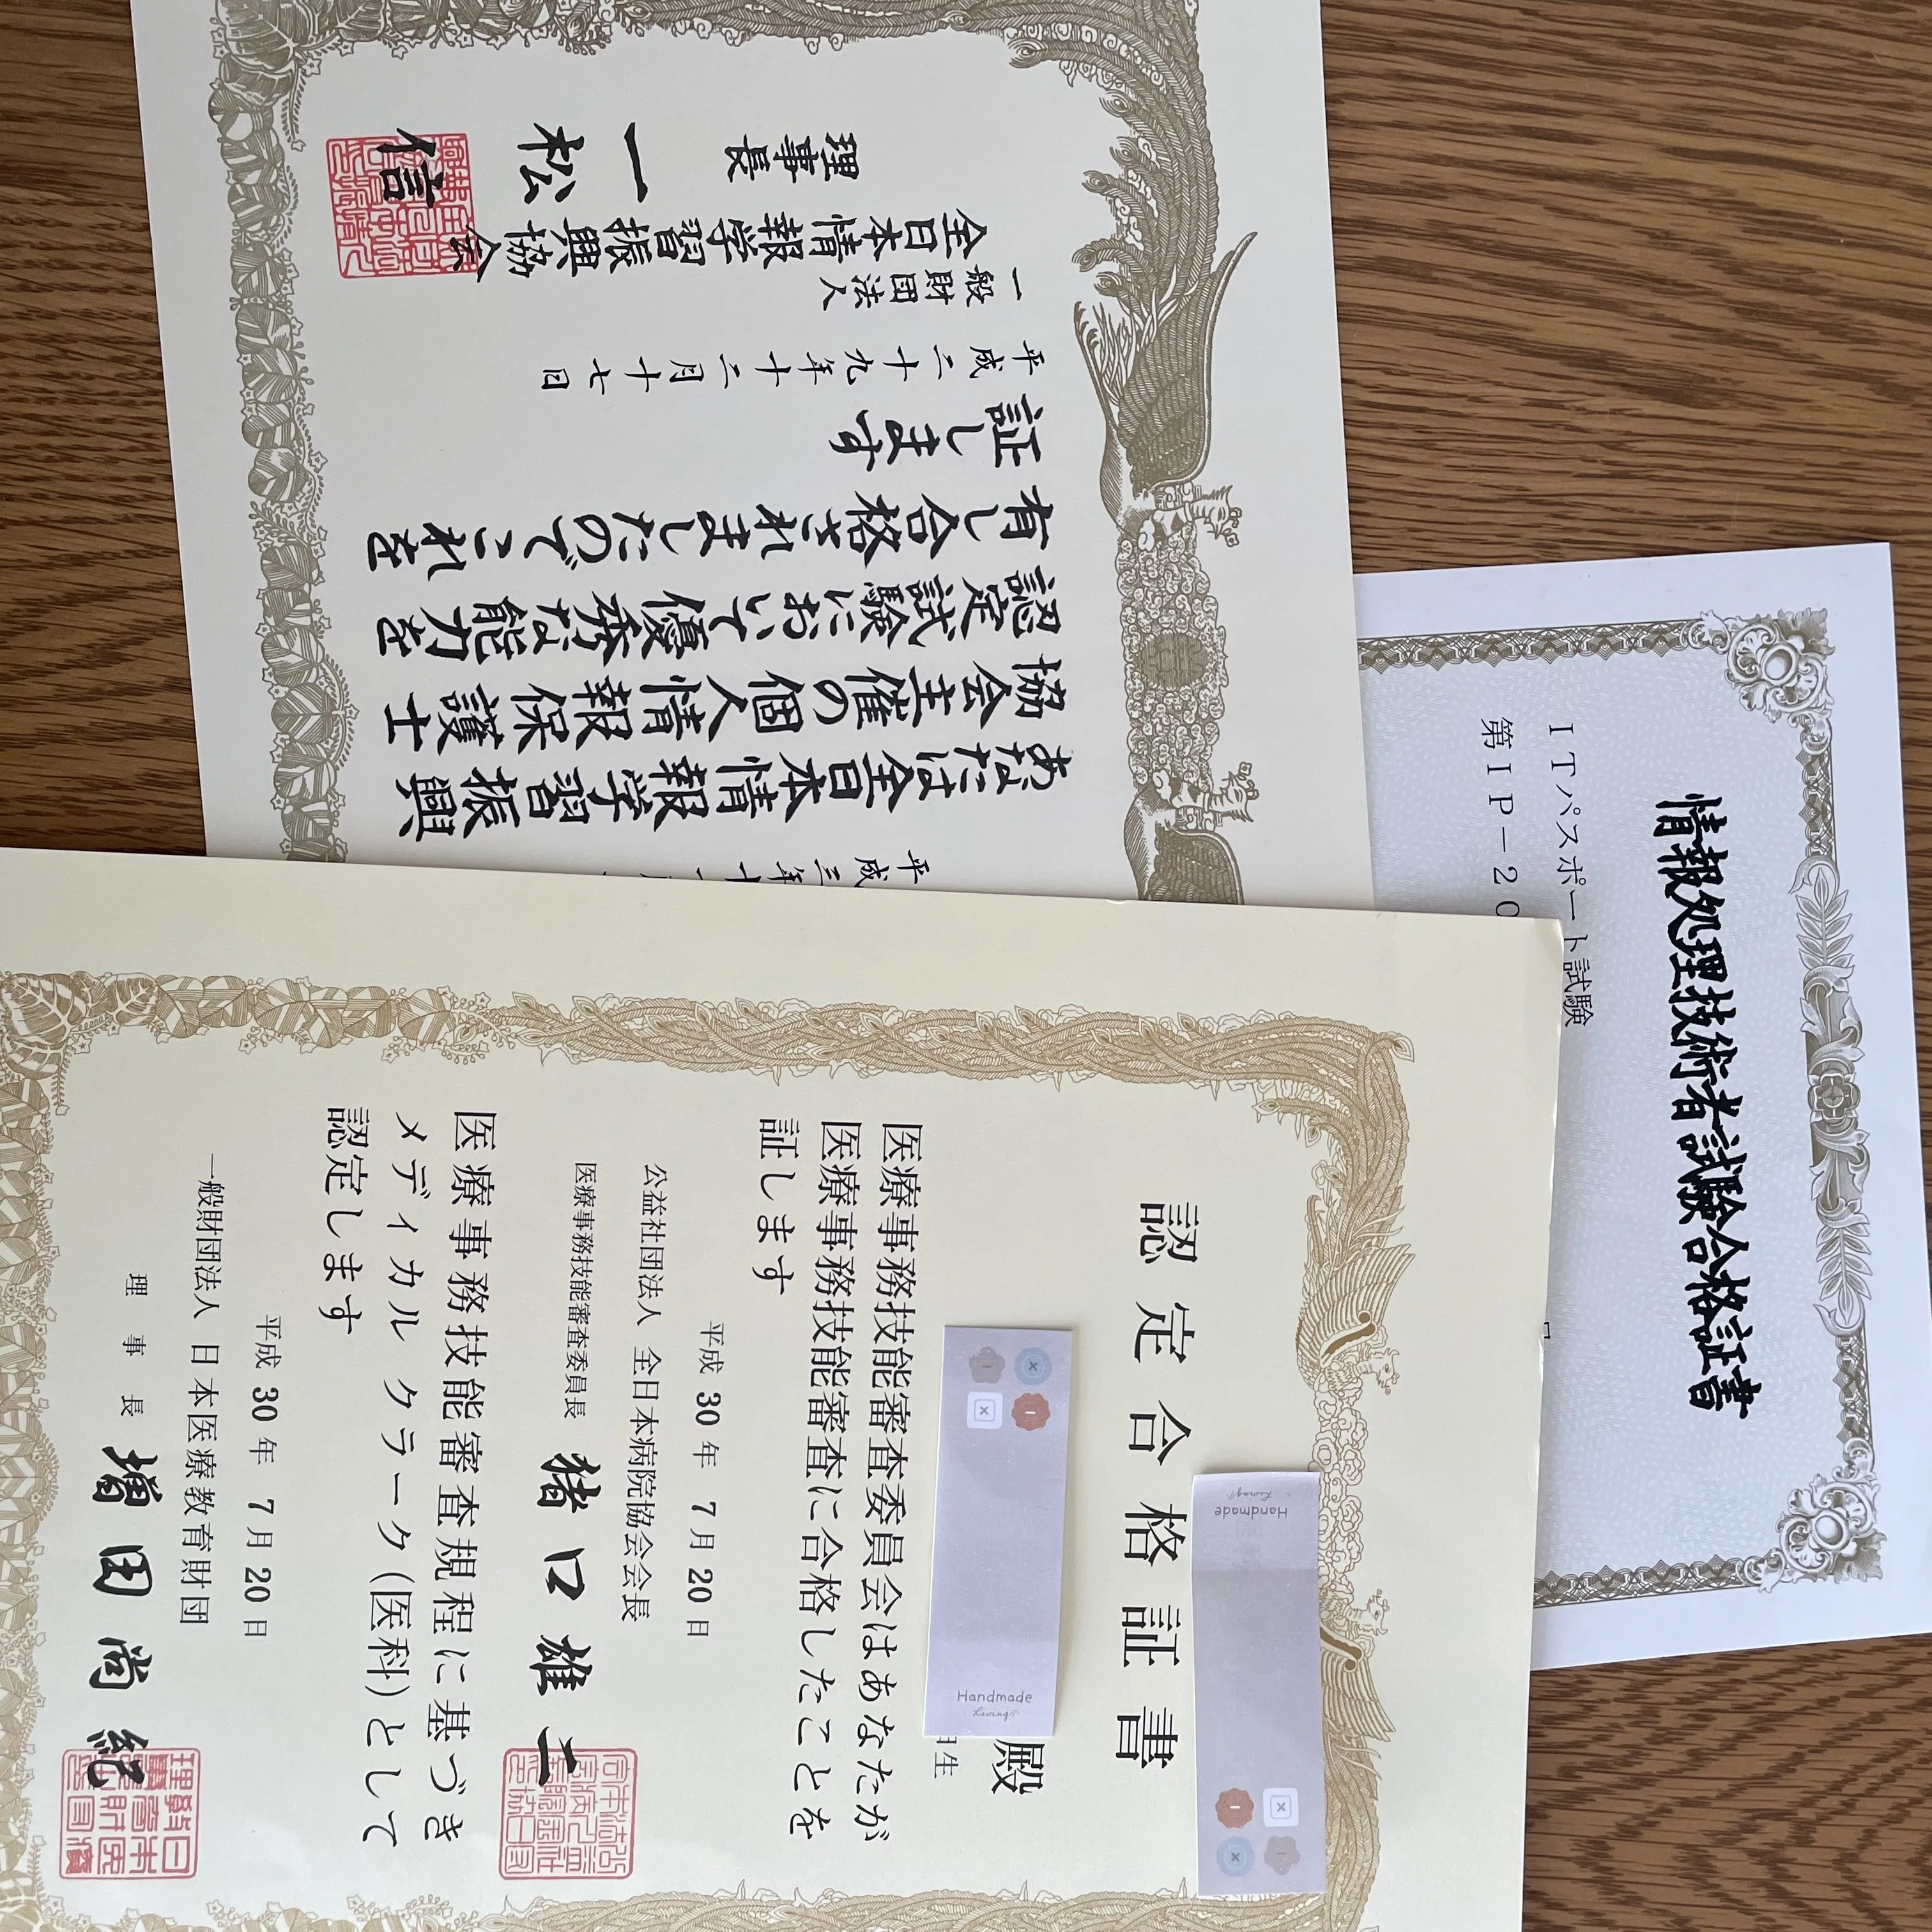 あなたは全日本情報学習振興
協会主催の個人情報保護士
認定試験において優秀な能力を
有し合格されましたのでこれを
証します
平成二十九年十二月十七日
一般財団法人
全日本情報学習振興協会
理事長
一松 信
情報処理技術者試験合格証書
ITパスポート試験
第IP-20
認定合格証書
殿
日生
医療事務技能審査委員会はあなたが
医療事務技能審査に合格したことを
証します
平成 30 年 7 月 20 日
公益社団法人 全日本病院協会会長
医療事務技能審査委員長 猪口雄二
医療事務技能審査規程に基づき
メディカル クラーク(医科)として
認定します
平成 30 年 7 月 20 日
一般財団法人 日本医療教育財団
理事長 増田尚紀
Handmade
Living
Handmade
Living